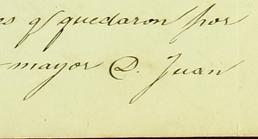 es q/ quedaron por
-mayor D. Juan